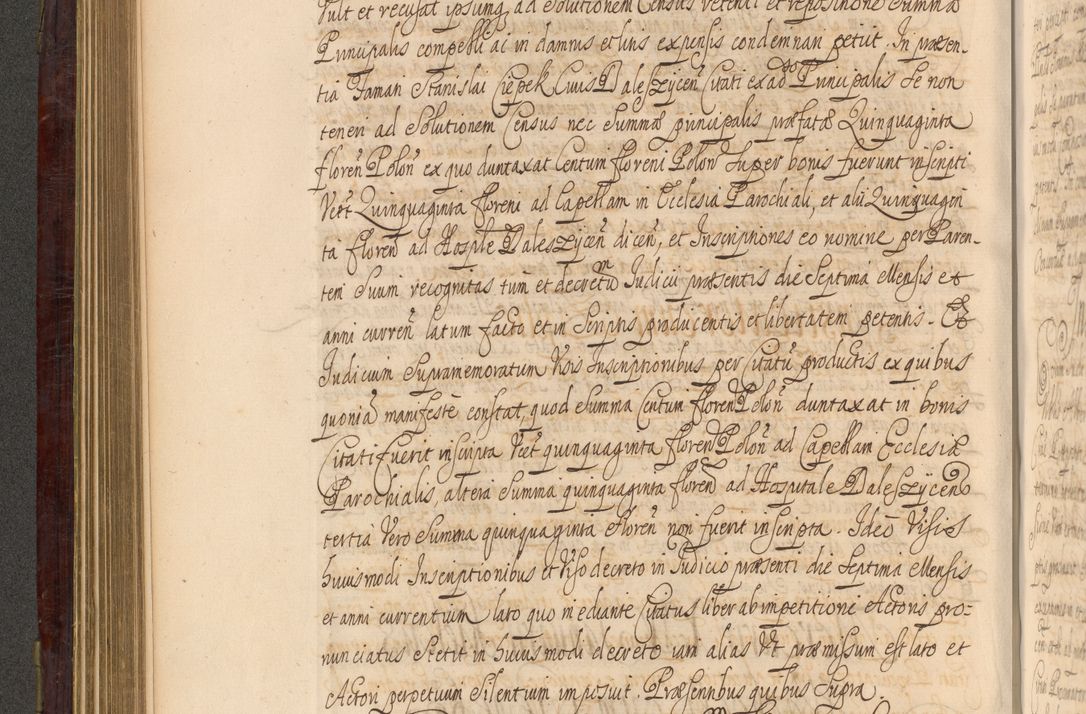 Vult et recusat ipsumq ad Solutionem Census retenti et repositione Summæ
Principalis compelli ac in damnis et litis expensis condemnari petiit. In præsen-
tia Famati Stanislai Ciepek Civis Daleszycen Citati ex ado Principalis Se non
teneri ad Solutionem Census nec Summæ principalis præfatæ Quinquaginta
floren Polon ex quo duntaxat Centum floreni Polon Super bonis fuerunt inscripti
Vcet Quinquaginta floreni ad Capellam in Ecclesia Parochiali, et alii Quinquagin
ta floren ad Hospile Daleszycen dicen, et Inscriptiones eo nomine per Paren-
tem Suum recognitas tum et decretum Judicii præsentis die Septima Mensis et
anni curren latum facto et in Scriptis producentis et libertatem petentis. Et
Judicium Supramemoratum Visis Inscriptionibus per Citatu productis ex quibus
quonia manifeste constat, quod Summa Centum floren Polon duntaxat in bonis
Citati fuerit inscripta Vcet quinquaginta floren Polon ad Capellam Ecclesiæ
Parochialis, altera Summa quinquaginta floren ad Hospitale Daleszycen
tertia Vero Summa quinquaginta floren non fuerit inscripta. Ideo Visis
huiusmodi Inscriptionibus et Viso decreto in Judicio præsenti die Septima Mensis
et anni currentium lato quo mediante Citatus liber ab impetitione Actoris pro-
nunciatus Stetit in huiusmodi decreto iam alias Vt præmissum est lato et
Actori perpetuum Silentium imposuit. Præsentibus quibus Supra.